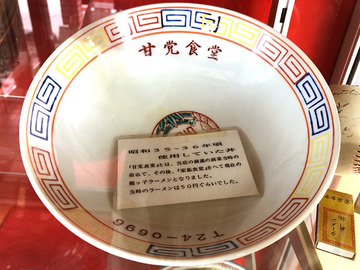 甘党食堂
昭和35-36年頃
使用していた丼
『甘党食堂』とは、当店の前進の創業当時の
店名で、その後、『家族食堂』をへて現在の
龍ッ子ラーメンとなりました。
当時のラーメンは50円ぐらいでした。
T24-0696